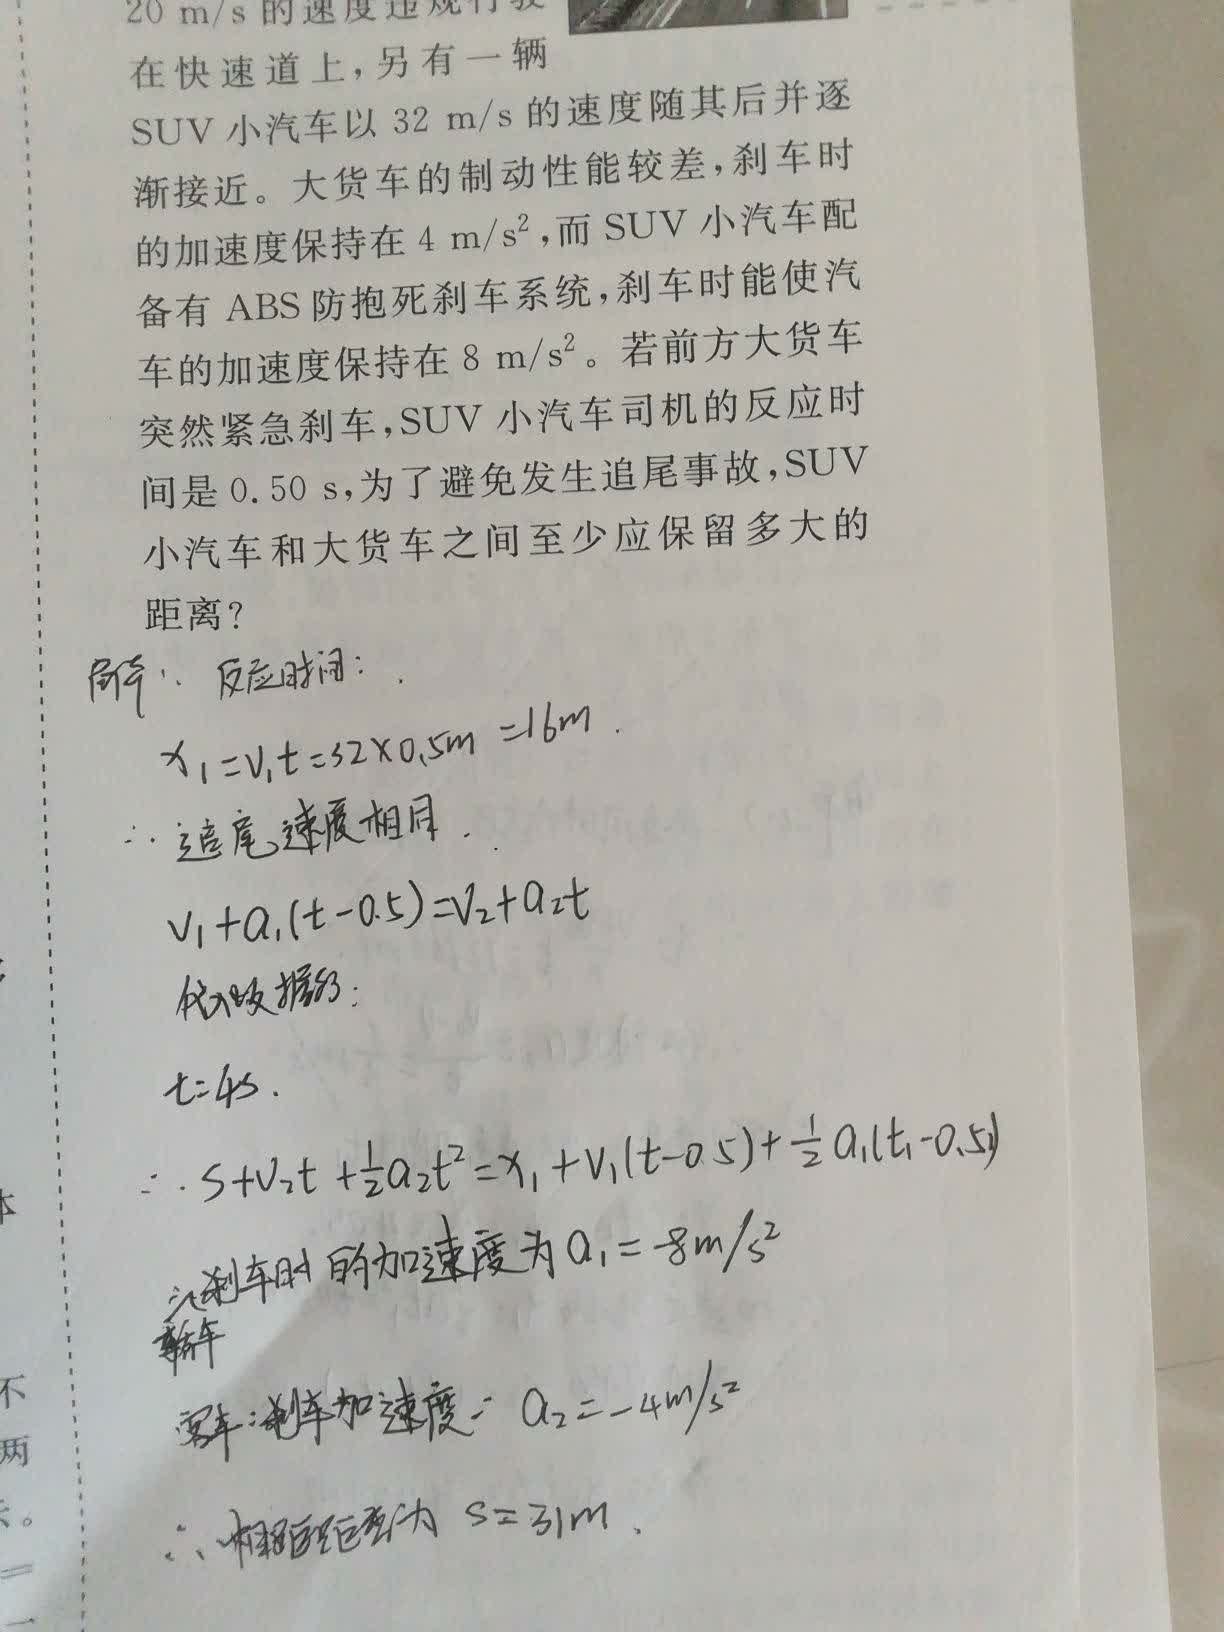 20 m/s 的速度违规行驶
在快速道上，另有一辆
SUV 小汽车以 32 m/s 的速度随其后并逐
渐接近。大货车的制动性能较差，刹车时
的加速度保持在 4 m/s²，而 SUV 小汽车配
备有 ABS 防抱死刹车系统，刹车时能使汽
车的加速度保持在 8 m/s²。若前方大货车
突然紧急刹车，SUV 小汽车司机的反应时
间是 0.50 s，为了避免发生追尾事故，SUV
小汽车和大货车之间至少应保留多大的
距离？
解：反应时间：
x₁=v₁t=32×0.5m=16m.
∴追尾速度相同.
v₁+a₁(t-0.5)=v₂+a₂t
代入数据得：
t=4s.
∴s+v₂t+½a₂t²=x₁+v₁(t-0.5)+½a₁(t₁-0.5)
∴刹车时的加速度为a₁=-8m/s²
轿车
客车：刹车加速度= a₂=-4m/s²
∴相距距离为 s=31m.
本
不
两
长。
=
一